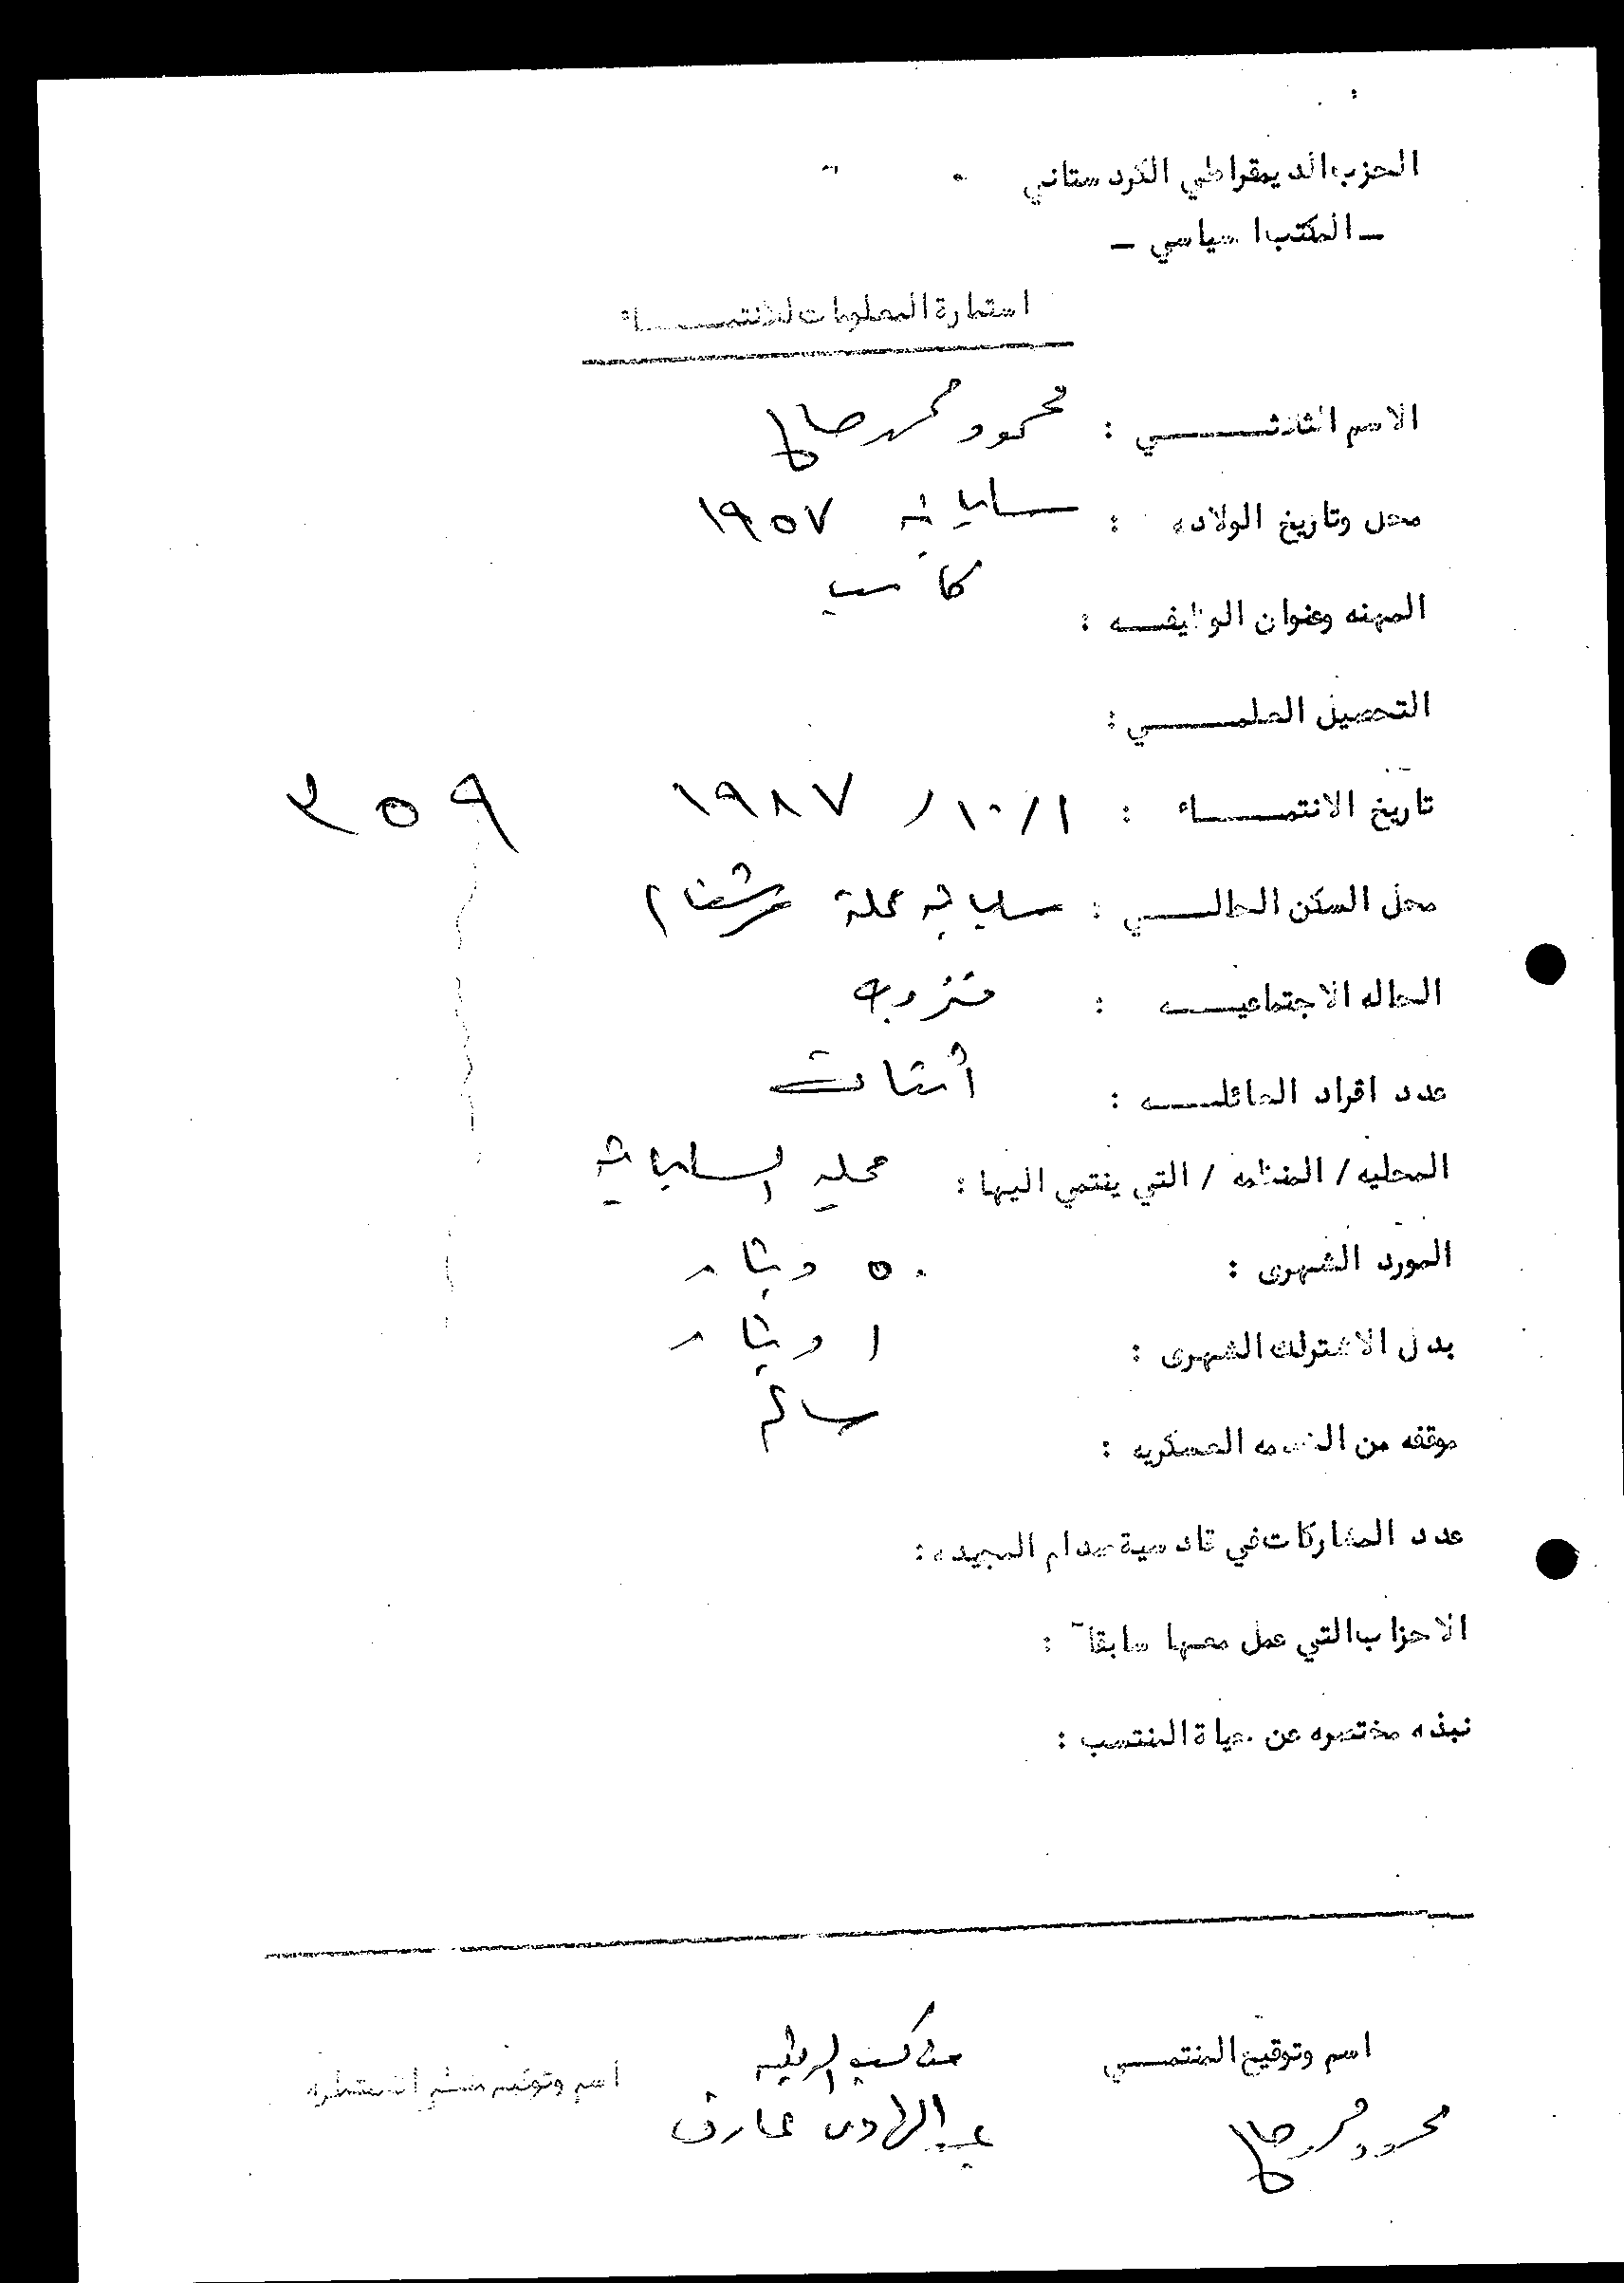 الحزب الديمقراطي الكردستاني
ـ المكتب السياسي ـ
استمارة المعلومات للانتمــــاء
الاسم الثلاثــــي : محمود محمد صالح
محل وتاريخ الولاده : سليمانية ١٩٥٧
المهنه وعنوان الوظيفــه : كاسب
التحصيل العلمــــي :
تاريخ الانتمــــاء : ١٩٨٧/١٠/١ ٣٥٩
محل السكن الحالــــي : سليمانية محلة
الحاله الاجتماعيــــه : متزوج
عدد افراد العائلــــه :
المحليه / المنظمه / التي ينتمي اليها : محلية السليمانية
المورد الشهرى : ٥٠ دينار
بدل الاشتراك الشهرى : ١ دينار
موقفه من الخدمه العسكريه : سالم
عدد المشاركات في قادسية صدام المجيده :
الاحزاب التي عمل معها سابقاً :
نبذه مختصره عن حياة المنتسب :
اسم وتوقيع المنتمــي
محمود محمد صالح
عبد الهادى عارف
اسم وتوقيع